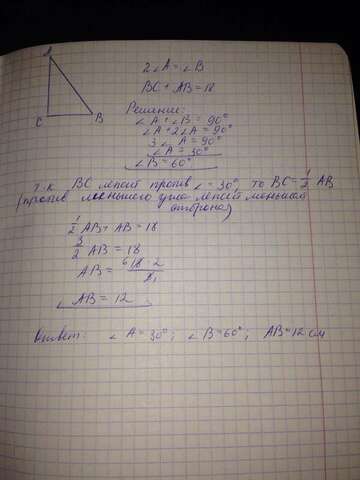 A
C
B
2∠A = ∠B
BC + AB = 18
Решание:
∠A + ∠B = 90°
∠A + 2∠A = 90°
3∠A = 90°
∠A = 30°
∠B = 60°
т.к. BC лежит против ∠ = 30°, то BC = 1/2 AB
(против меньшего угла лежит меньшая
сторона)
1/2 AB + AB = 18
3/2 AB = 18
AB = 6 18 · 2 / 3 1
∠ AB = 12
Ответ: ∠A = 30°; ∠B = 60°; AB = 12 см